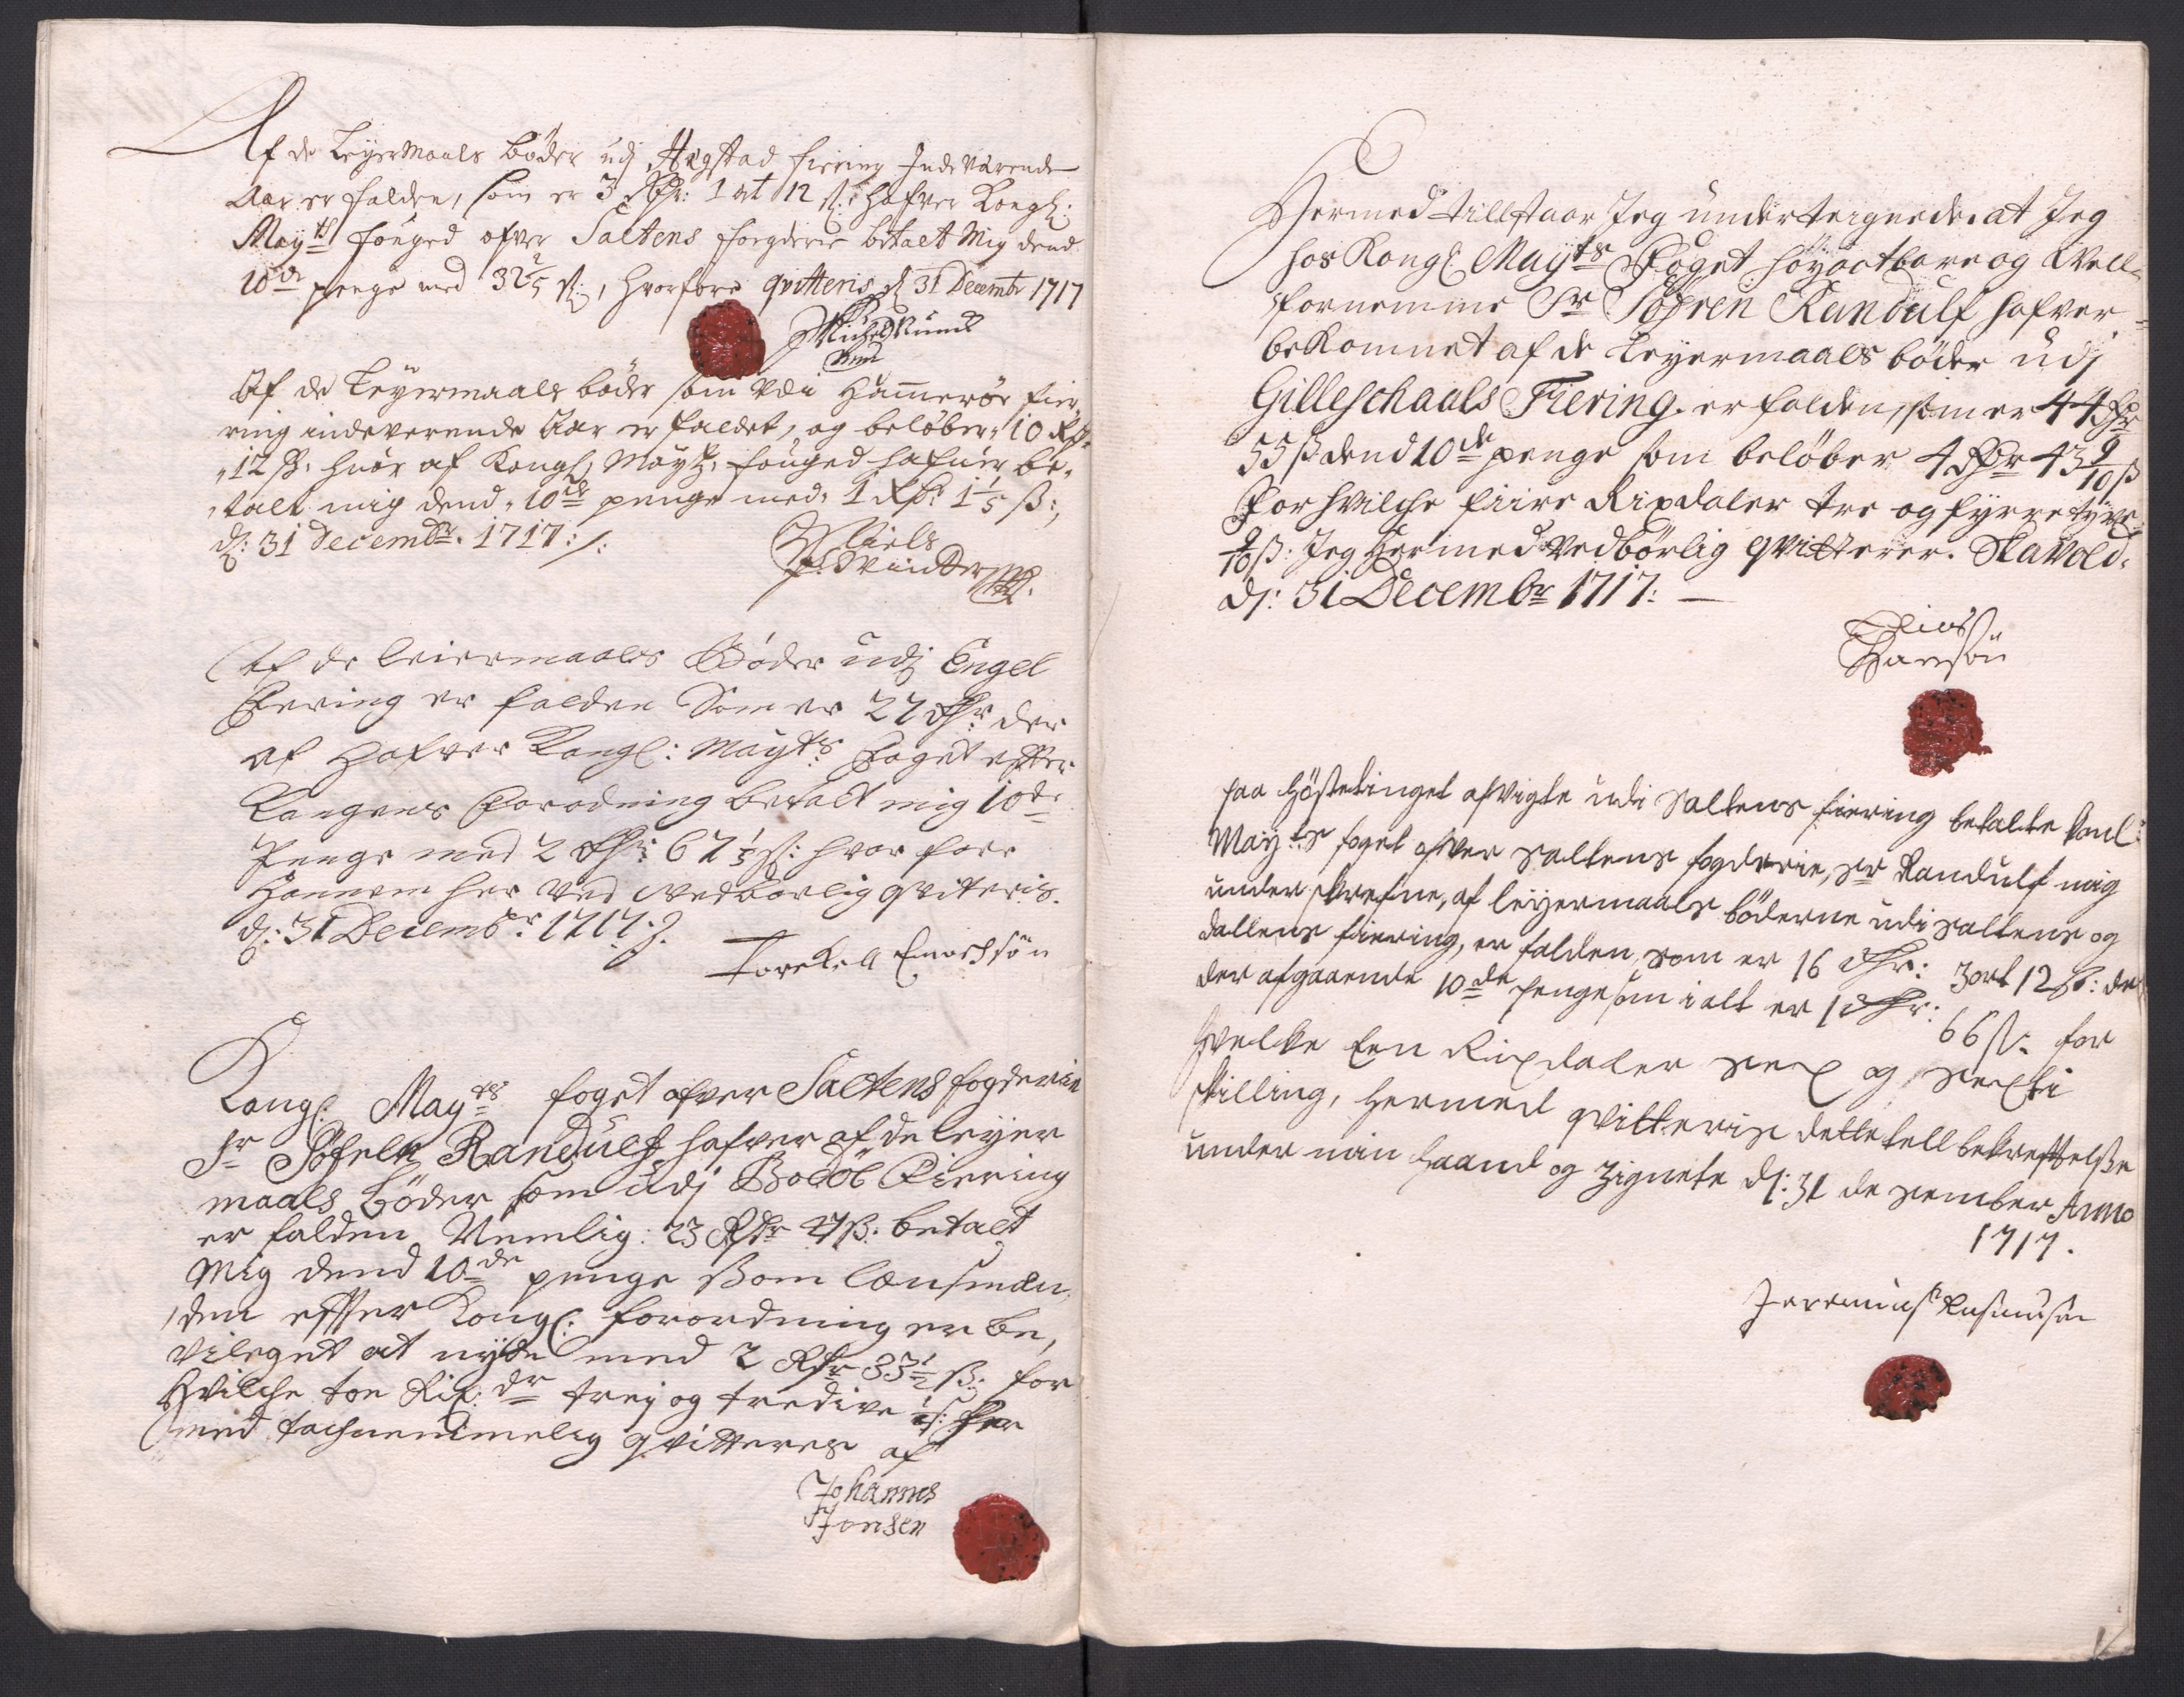 Af de Leyermaals bøder udj Hegstad fiering Indeværende
Aar er falden, som er 3 Rdr: 1 ort 12 s: hafver Kongl:
Mayts fouged ofver Saltens fogderie betalt Mig dend
10de penge med 32 2/5 s:, hvorfore qvitteris d 31 Decembr 1717
Michel
Af de Leyermaals bøder som udi Hammerøe fier,
ring indeverende Aar er faldet, og beløber, 10 Rdr
12 s, huor af Kongl, Mayts, fouged hafuer, be,
talt mig dend, 10de penge med, 1 Rdr 1 1/5 s:,
d: 31 Decembr. 1717:/:
Niels
P: Winther
Af de leiermaals Bøder udj Engel
Fering er falden Som er 27 Rdr der
af Hafver Kongl: Mayts Foget efter
Kongens Forodning betalt mig 10de
Penge med 2 Rdr: 67 1/5 s: hvor fore
Hannem her ved vedborlig qviteris.
d: 31 Decembr: 1717:/.
Torekell Enochsøn
Kongl: Mayts foget ofver Saltens fogderie
Sr Søfren Randulf hafver af de leyer
maals bøder som udj Bodøe Fiering
er falden Nemlig: 23 Rdr 47 s: betalt
Mig dend 10de penge som lænsmæn,
den efter Kongl: forordning er be,
vileget at nyde med 2 Rdr 33 1/2 s: for
Hvilche toe Rix: dr trej og tredive 1/2 s: her
med tachnemmelig qvitteres af
Johannes
Jonsen
Hermed tillstaar Jeg underteignede at Jeg
hos Kongl Mayts Foget høyagtbare og Well=
fornemme Sr Søfren Randulf hafver
bekommet af de Leyermaals bøder udj
Gilleschaals Fiering er falden, som er 44 Rdr
55 s dend 10de penge som beløber 4 Rdr 43 9/10 s
For hvilche fiire Rixdaler tre og fyrretyve
9/10 s: Jeg Hermed vedbørlig qvitterer. Stavold.
d: 31 Decembr 1717: —
Elias
Hansøn
paa Høstetinget afvigte udi Saltens fiering betalte Konl:
Mayts foget ofver Saltens fogderie, Sr Randulf mig
underskrefne, af leyermaals bøderne udi Saltens og
dallens fiering, er falden som er 16 Rdr: 3 ort 12 s: de
der afgaaende 10de penge som i alt er 1 Rdr: 66 s: for
hvelke Een Rixdaler sex og sexti
skilling, hermed qvitteris dette till bekreftelse
under min haand og Zignete d: 31 de sember Anno
1717.
Jeremias Rasmusen